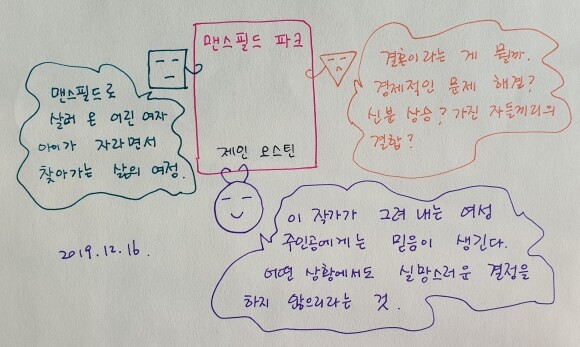 맨스필드 파크
제인 오스틴
맨스필드로
살러 온 어린 여자
아이가 자라면서
찾아가는 삶의 여정.
결혼이라는 게 뭘까.
경제적인 문제 해결?
신분 상승? 가진 자들끼리의
결합?
이 작가가 그려 내는 여성
주인공에게는 믿음이 생긴다.
어떤 상황에서도 실망스러운 결정을
하지 않으리라는 것.
2019.12.16.